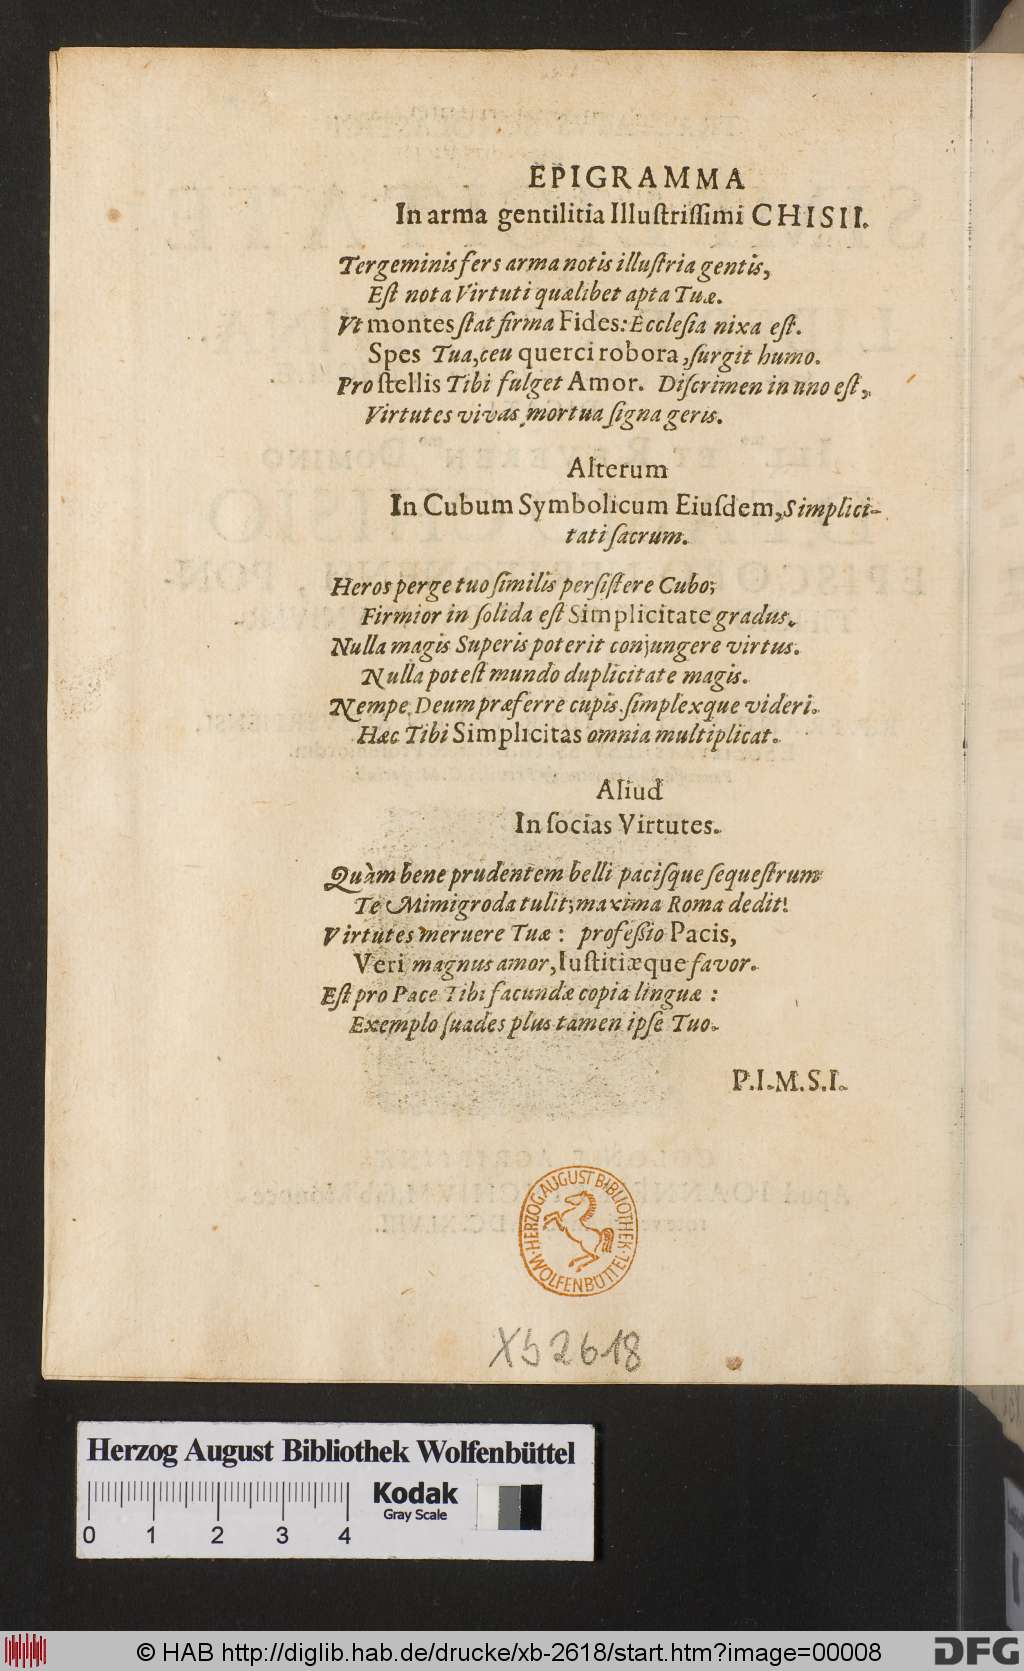 EPIGRAMMA
In arma gentilitia Illuſtriſſimi CHISII.
Tergeminis fers arma notis illuſtria gentis,
Eſt nota Virtuti quælibet apta Tuæ.
Vt montes ſtat firma Fides: Ecclesia nixa eſt.
Spes Tua, ceu querci robora, ſurgit humo.
Pro ſtellis Tibi fulget Amor. Diſcrimen in uno eſt,
Virtutes vivas, mortua ſigna geris.
Alterum
In Cubum Symbolicum Eiuſdem, Simplici-
tati ſacrum.
Heros perge tuo ſimilis perſiſtere Cubo;
Firmior in ſolida eſt Simplicitate gradus.
Nulla magis Superis poterit conjungere virtus.
Nulla poteſt mundo duplicitate magis.
Nempe Deum præferre cupis ſimplexque videri.
Hæc Tibi Simplicitas omnia multiplicat.
Aliud
In ſocias Virtutes.
Quàm bene prudentem belli paciſque ſequeſtrum
Te Mimigroda tulit; maxima Roma dedit!
Virtutes meruere Tuæ : profeßio Pacis,
Veri magnus amor, Iuſtitiæque favor.
Eſt pro Pace Tibi facundæ copia linguæ :
Exemplo ſuades plus tamen ipſe Tuo.
P.I.M.S.I.
HERZOG AUGUST BIBLIOTHEK
WOLFENBÜTTEL
Xb 2618
Herzog August Bibliothek Wolfenbüttel
Kodak
Gray Scale
0 1 2 3 4
© HAB http://diglib.hab.de/drucke/xb-2618/start.htm?image=00008
DFG